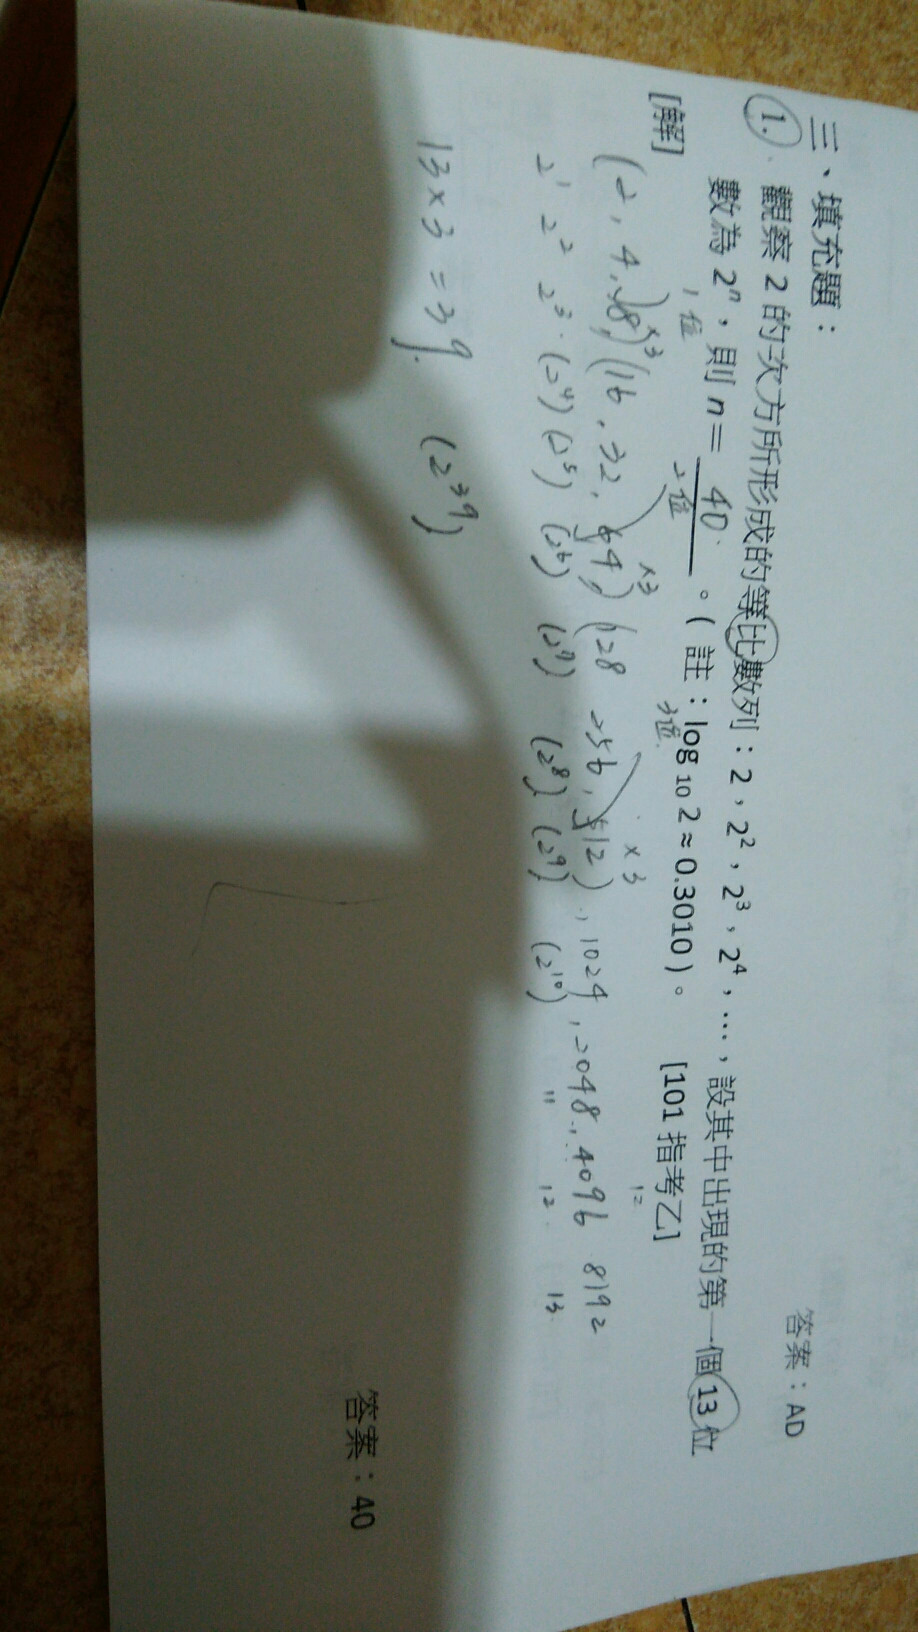 答案：AD
三、填充題：
1. 觀察 2 的次方所形成的等比數列：2，2²，2³，2⁴，…，設其中出現的第一個 13 位
數為 2ⁿ，則 n = 40 。( 註：log₁₀ 2 ≈ 0.3010 )。 [101 指考乙]
[解]
1位 2位 3位 12
×3 ×3 ×3
(2, 4, 8), (16, 32, 64,) (128 256, 512), 1024, 2048, 4096 8192
2¹ 2² 2³ (2⁴) (2⁵) (2⁶) (2⁷) (2⁸) (2⁹) (2¹⁰) 11 12 13
13×3=39. (2³⁹)
答案：40